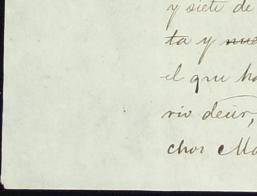 y siete de
ta y nue
el que ha
rio decir,
chor Ma